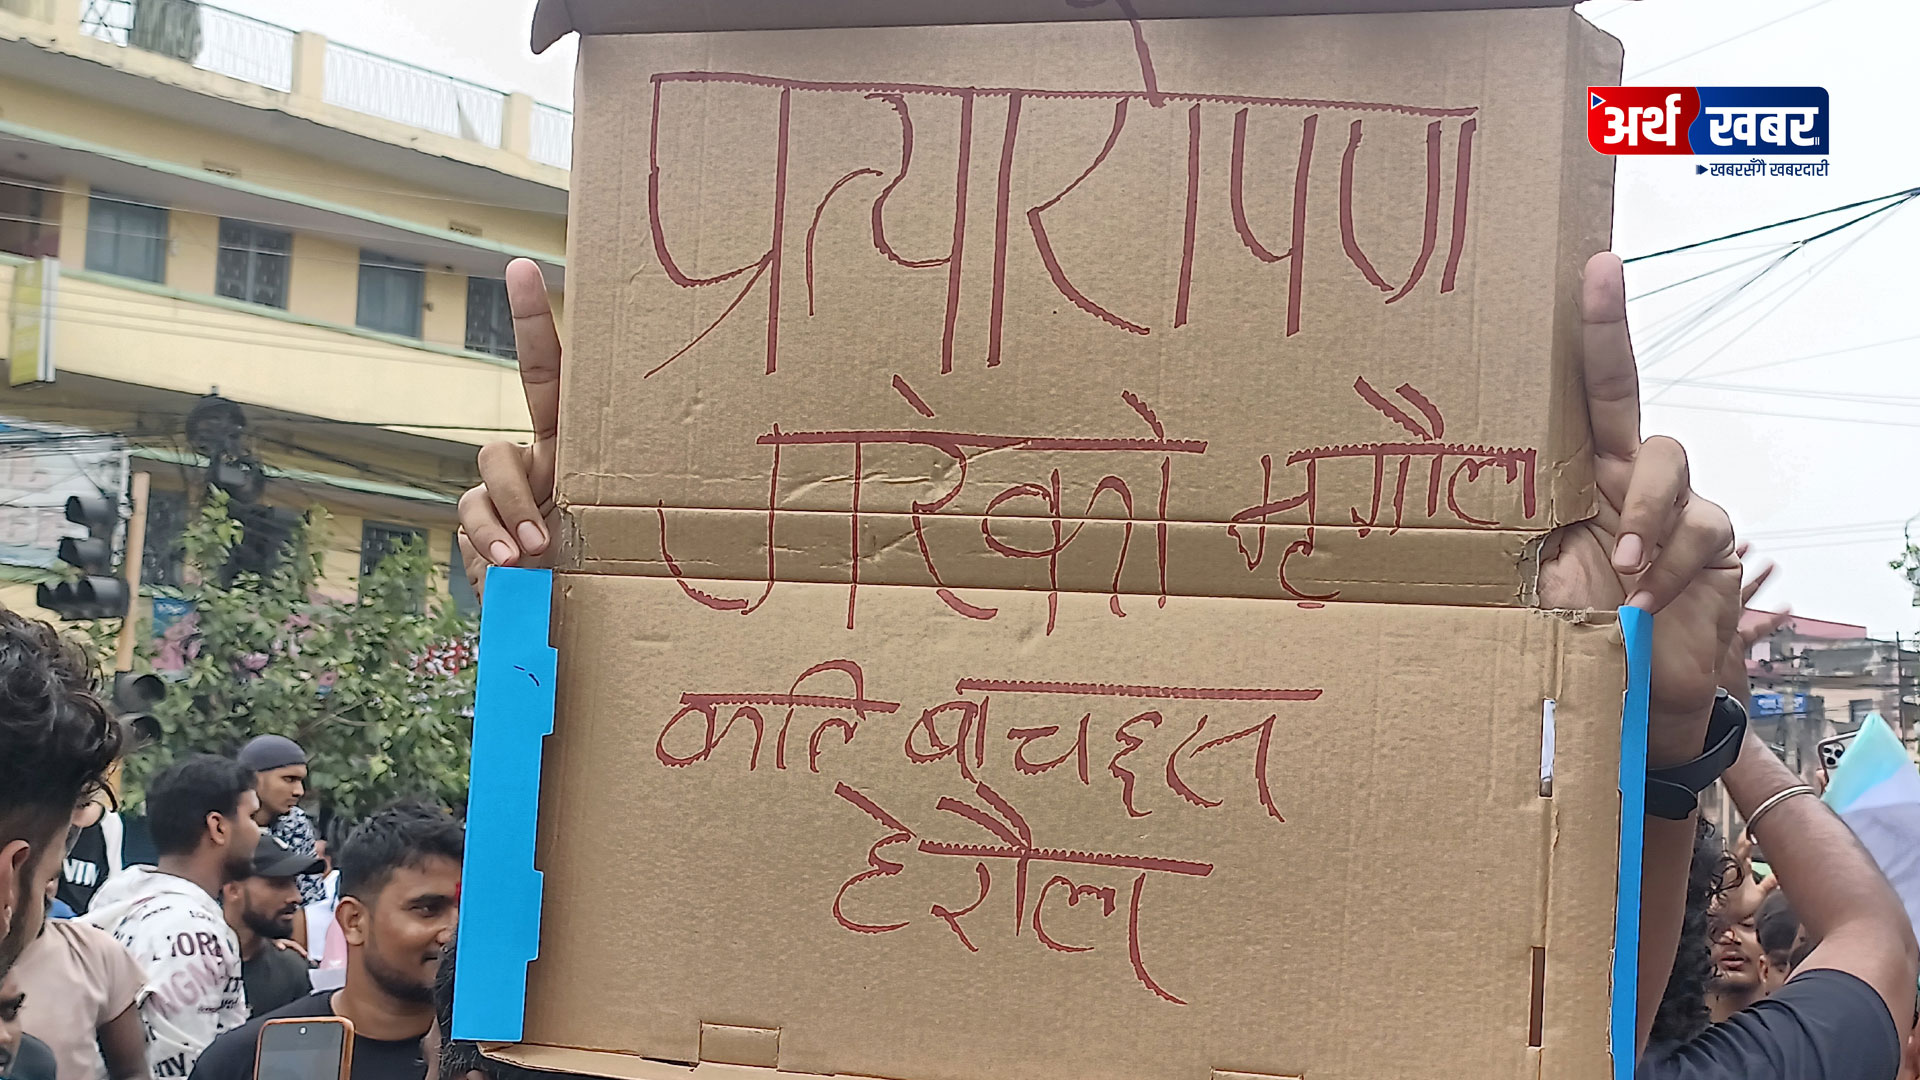 अर्थ खबर
खबरसँगै खबरदारी
प्रत्यारोपण
गरेको मृगौल
कति बाचछत
हेरौल